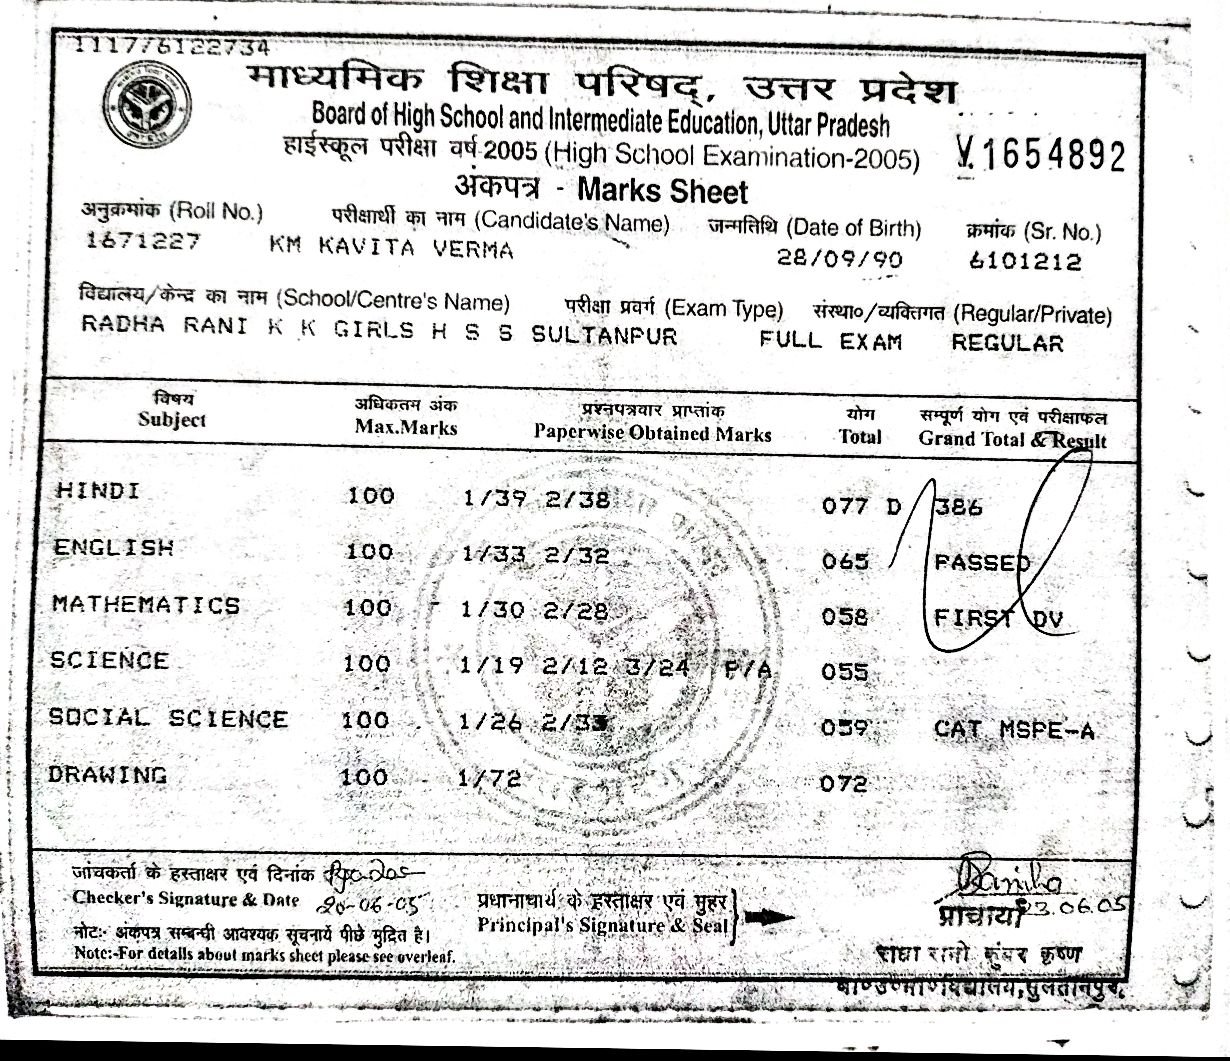 1117/6122734
माध्यमिक शिक्षा परिषद्, उत्तर प्रदेश
Board of High School and Intermediate Education, Uttar Pradesh
हाईस्कूल परीक्षा वर्ष 2005 (High School Examination-2005) V.1654892
अंकपत्र - Marks Sheet
अनुक्रमांक (Roll No.) परीक्षार्थी का नाम (Candidate's Name) जन्मतिथि (Date of Birth) क्रमांक (Sr. No.)
1671227 KM KAVITA VERMA 28/09/90 6101212
विद्यालय/केन्द्र का नाम (School/Centre's Name) परीक्षा प्रवर्ग (Exam Type) संस्था०/व्यक्तिगत (Regular/Private)
RADHA RANI K K GIRLS H S S SULTANPUR FULL EXAM REGULAR
विषय अधिकतम अंक प्रश्नपत्रवार प्राप्तांक योग सम्पूर्ण योग एवं परीक्षाफल
Subject Max.Marks Paperwise Obtained Marks Total Grand Total & Result
HINDI 100 1/39 2/38 077 D 386
ENGLISH 100 1/33 2/32 065 PASSED
MATHEMATICS 100 1/30 2/28 058 FIRST DV
SCIENCE 100 1/19 2/12 3/24 P/A 055
SOCIAL SCIENCE 100 1/26 2/33 059 CAT MSPE-A
DRAWING 100 1/72 072
जांचकर्ता के हस्ताक्षर एवं दिनांक
Checker's Signature & Date 20-06-05
प्रधानाचार्य के हस्ताक्षर एवं मुहर
Principal's Signature & Seal
प्राचार्या 23.06.05
नोटः- अंकपत्र सम्बन्धी आवश्यक सूचनायें पीछे मुद्रित है।
Note:-For details about marks sheet please see overleaf.
राधा रानी कुंवर कृष्ण
सुलतानपुर.